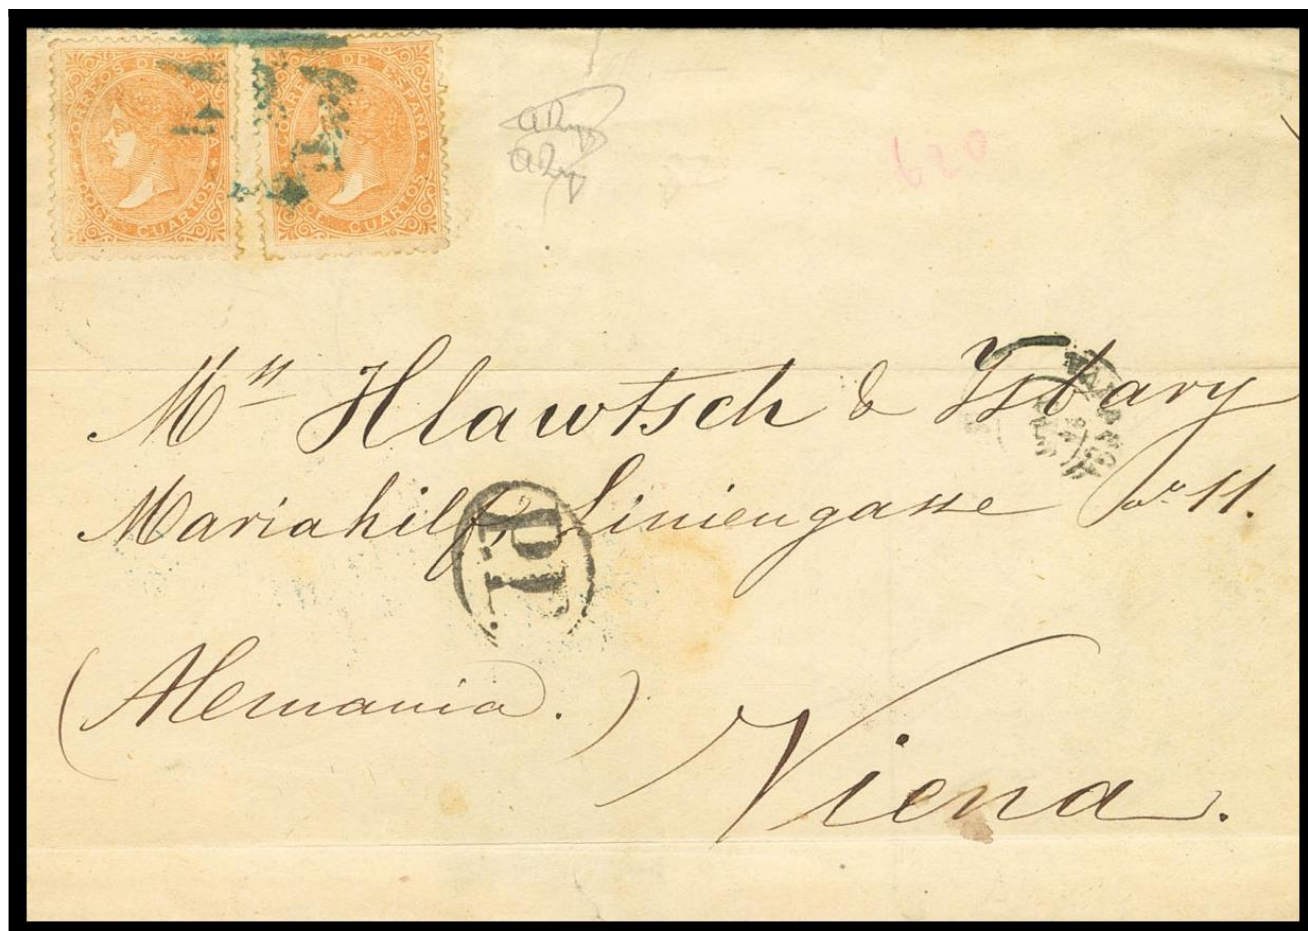 CORREOS DE ESPAÑA
DOCE CUARTOS
CORREOS DE ESPAÑA
DOCE CUARTOS
Mrs Hlawtsch & Isbary
Mariahilf, Liniengasse No 11.
P.D.
(Alemania.)
Viena.